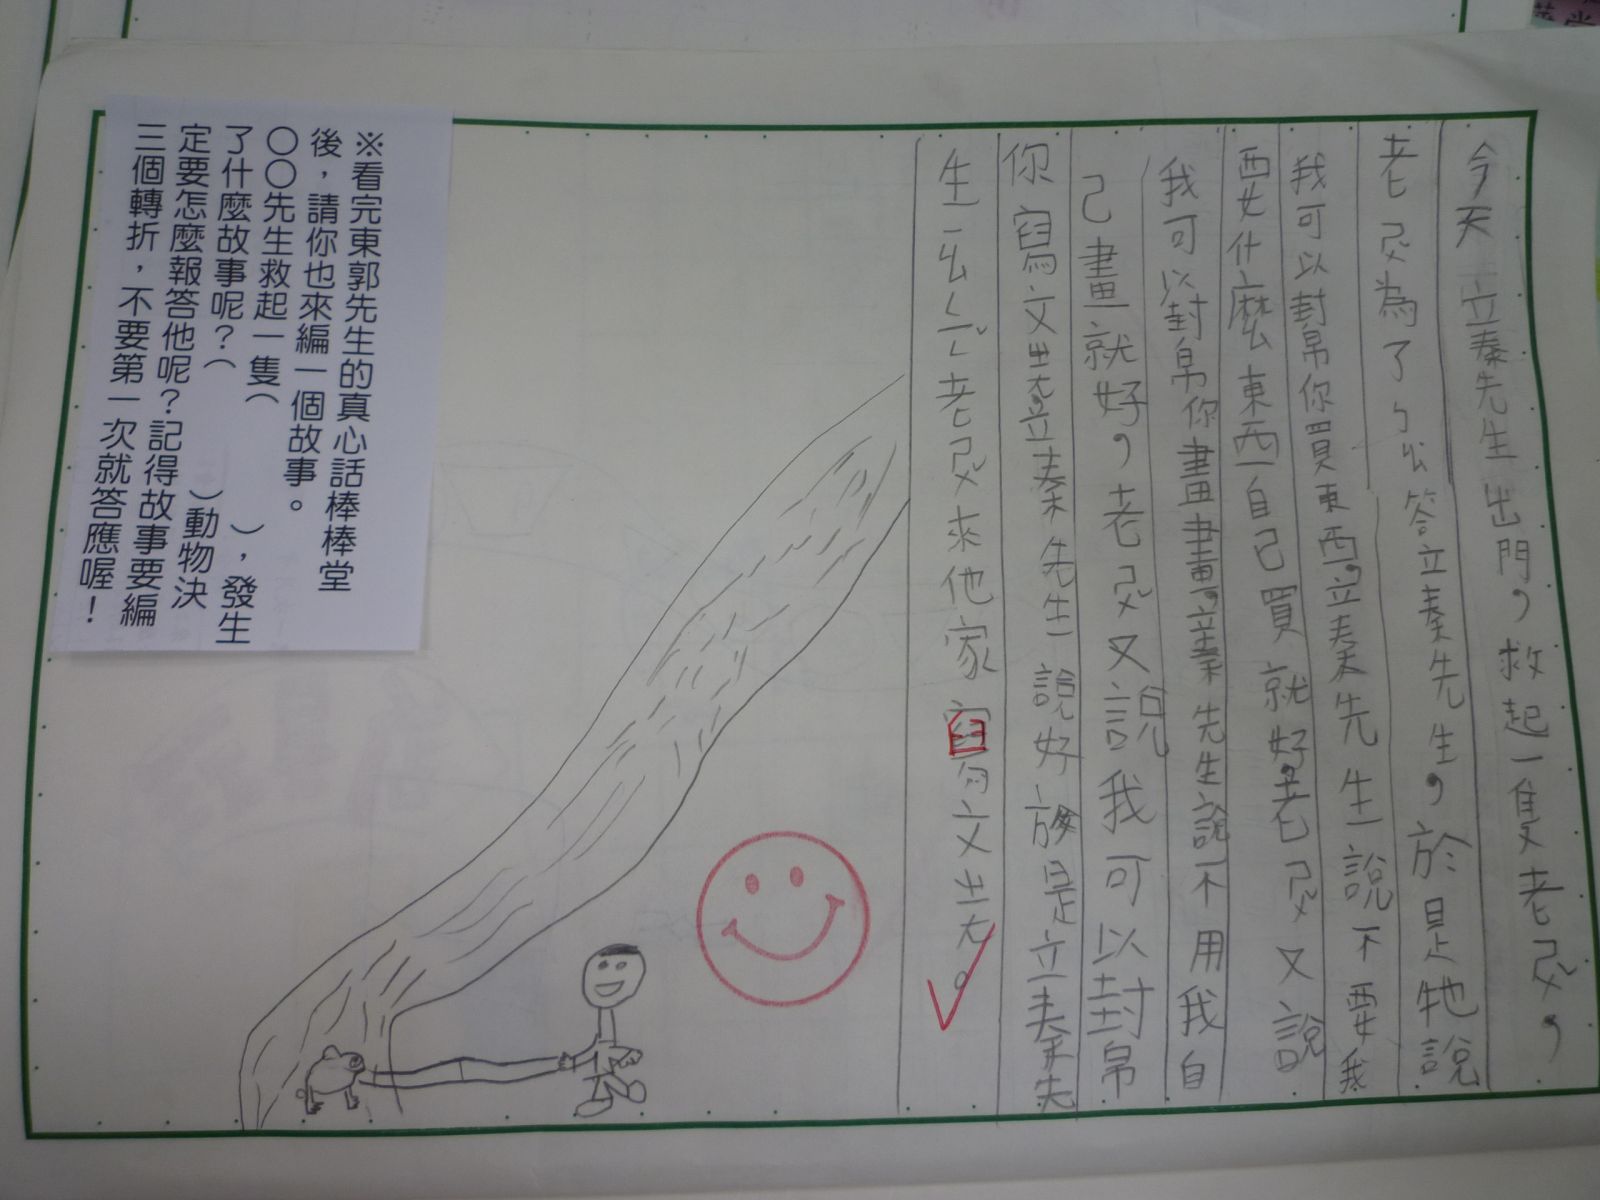 今天立秦先生出門，救起一隻老ㄕㄨˇ，
老ㄕㄨˇ為了ㄅㄠ答立秦先生，於是牠說
我可以幫你買東西，立秦先生說不要我
要什麼東西自己買就好，老ㄕㄨˇ又說
我可以幫你畫畫，立秦先生說不用我自
己畫就好，老ㄕㄨˇ又說我可以幫
你寫文ㄓㄤ，立秦先生說好於是立秦先
生ㄧㄠ老ㄕㄨˇ來他家寫文ㄓㄤ。
※看完東郭先生的真心話棒棒堂
後，請你也來編一個故事。
〇〇先生救起一隻（　　），發生
了什麼故事呢？（　　）動物決
定要怎麼報答他呢？記得故事要編
三個轉折，不要第一次就答應喔！